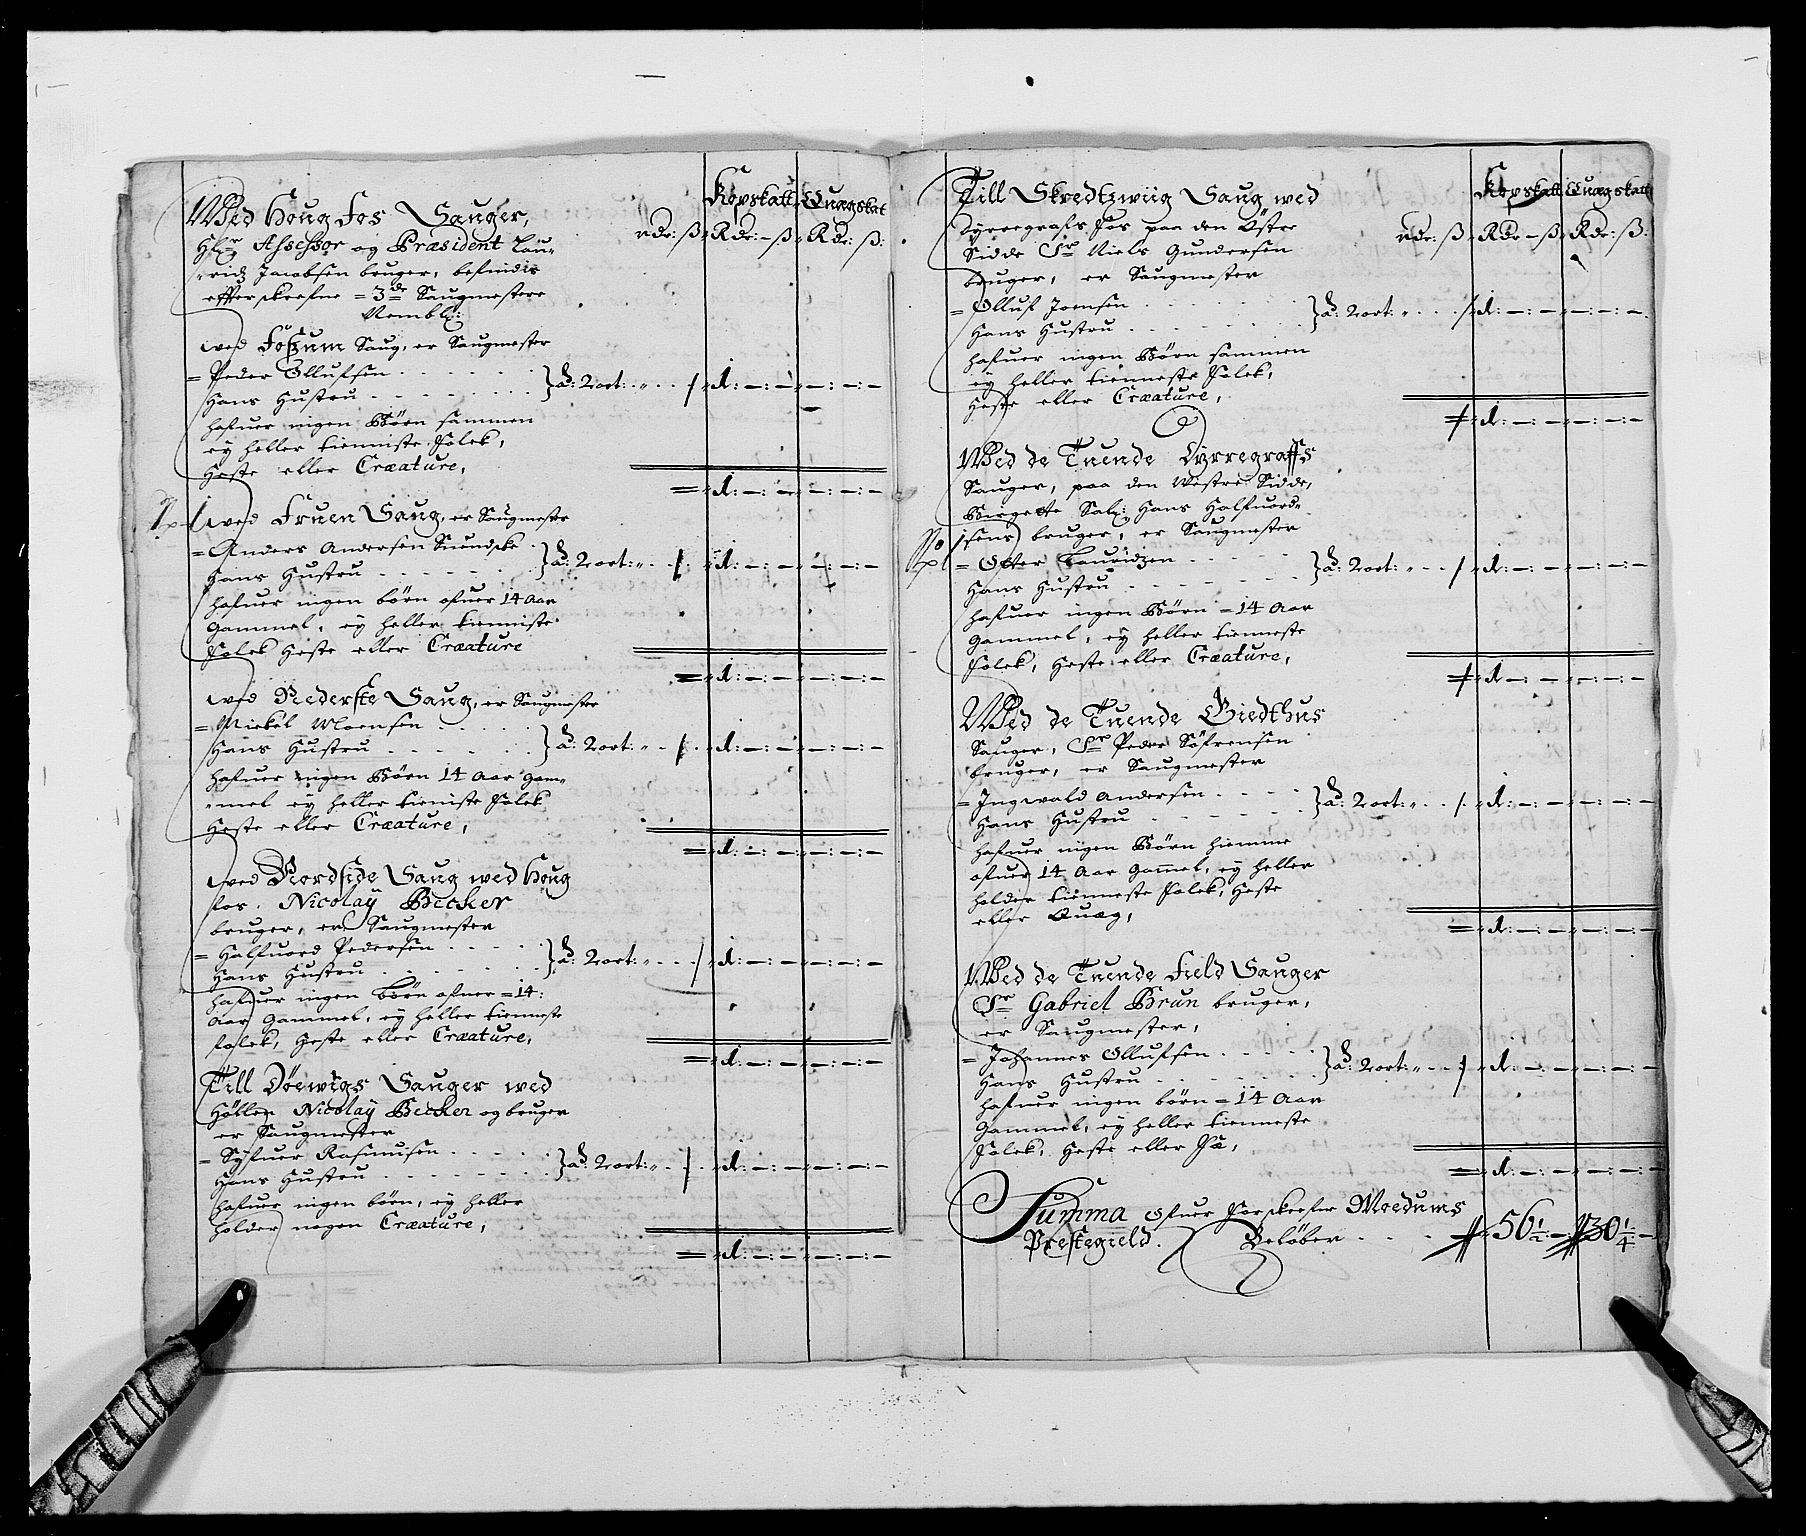 Kopskatt Quægskat
rdr: ß Rdr: ß Rdr: ß:
Wed Houg Fos Sauger,
Hr: Assessor og Præsident Lau-
ridz Jacobsen bruger, befindis
effterskrefne = 3de Saugmestere
Nembl:
wed Foszum Saug, er Saugmester
= Peder Ollufsen
Hans Hustru } ad: 2 ort: 1: — : —
hafuer ingen Børn sammen
ey heller tienniste Folck,
Heste eller Creature,
= 1: — : —
wed Fruen Saug, er Saugmester
= Anders Andersen Suendske
Hans Hustru } ad: 2 ort: 1: — : —
hafuer ingen børn ofuer 14 Aar
Gammel, ey heller tienniste
Folck Heste eller Creature
= 1: — : —
wed Nederste Saug, er Saugmester
= Mickel Moensen
Hans Hustru } ad: 2 ort: 1: — : —
hafuer ingen Børn 14 Aar Gam-
mel ey heller tieniste Folck
Heste eller Creature,
= 1: — : —
wed Nordside Saug wed Houg
fos. Nicolaÿ Becker
bruger, er Saugmester
= Halfuord Pedersen
Hans Hustru } ad: 2 ort: 1: — : —
hafuer ingen Børn ofuer = 14:
Aar Gammel, ey heller tienneste
folck, Heste eller Creature,
= 1: — : —
Till Döewigs Sauger wed
Hölle Nicolaÿ Becker og bruger
er Saugmester
= Syfuer Rasmusen
Hans Hustru } ad: 2 ort: 1: — : —
hafuer ingen børn, ey heller
holder nogen Creature,
= 1: — : —
Kopskatt Quægskatt
rdr: ß Rdr — ß Rdr: ß:
Till Skredtzwiig Saug wed
Dyrregrafs Fos paa den Öster
Sidde Sr Niels Gundersen
bruger, er Saugmester
= Olluf Joensen
Hans Hustru } ad: 2 ort: 1: — : —
hafuer ingen Børn sammen
ey heller tienneste Folck,
Heste eller Creature,
1: — : —
Wed de Tuende Dyrregraffs
Sauger, paa den Westre Sidde,
Birgette Sal: Hans Halfuord-
sens bruger, er Saugmester
= Lauridzen
Hans Hustru } ad: 2 ort: 1: — : —
hafuer ingen Børn = 14 Aar
Gammel, ey heller tienneste
Folck, Heste eller Creature,
1: — : —
Wed de Tuende Giedthus
Sauger, Sr Peder Söfrensen
bruger, er Saugmester
= Ingwald Andersen
Hans Hustru } ad: 2 ort: 1: — : —
hafuer ingen Børn hiemme
ofuer 14 Aar Gammel, ey heller
holder tienneste Folck, Heste
eller Quæg,
= 1: — : —
Wed de Tuende Field Sauger
Sr Gabriel Brun bruger,
er Saugmester,
= Johannes Ollufsen
Hans Hustru } ad: 2 ort: 1: — : —
hafuer ingen børn = 14 Aar
Gammel, ey heller tienneste
Folck, Heste eller Fæ,
= 1: — : —
Summa ofuer forskrefne Moedums
Prestegield. Beløber 56 1/2: — 30 1/4 —